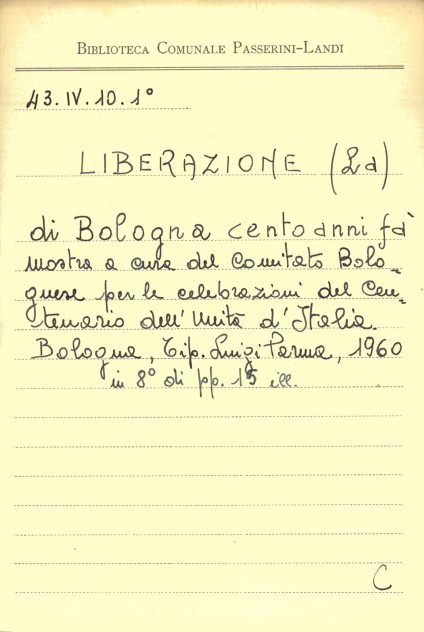 BIBLIOTECA COMUNALE PASSERINI-LANDI
43.IV.10.1°
LIBERAZIONE (La)
di Bologna cento anni fà
mostra a cura del Comitato Bolo-
gnese per le celebrazioni del Cen-
tenario dell'Unità d'Italia.
Bologna, Tip. Luigi Parma, 1960
in 8° di pp. 15 ill.
C